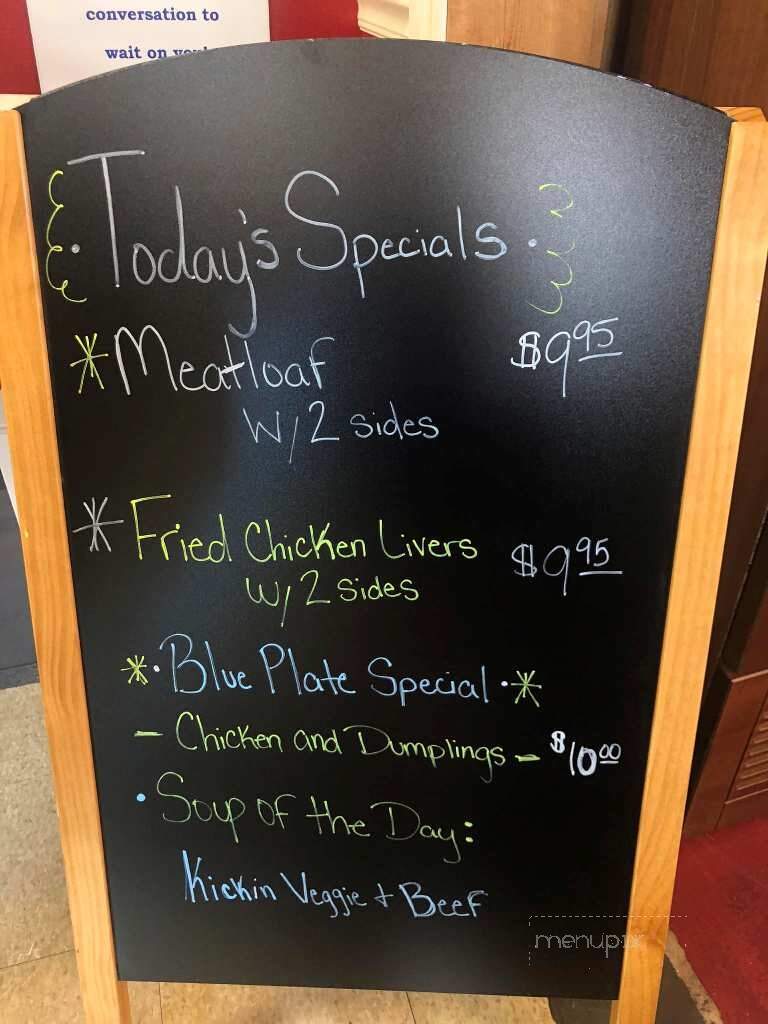 conversation to
wait on you!
Today's Specials
Meatloaf $9.95
W/2 sides
Fried Chicken Livers $9.95
W/2 sides
Blue Plate Special
- Chicken and Dumplings - $10.00
• Soup of the Day:
Kickin Veggie + Beef
menupix